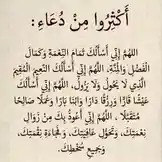 أَكْثِرُوا مِنْ دُعَاءِ:
اللَّهُمَّ إِنِّي أَسْأَلُكَ تَمَامَ النِّعْمَةِ وَكَمَالَ
الْفَضْلِ وَالْمِنَّةِ، اللَّهُمَّ إِنِّي أَسْأَلُكَ النَّعِيمَ الْمُقِيمَ
الَّذِي لَا يَحُولُ وَلَا يَزُولُ، اللَّهُمَّ إِنِّي أَسْأَلُكَ
عَيْشًا قَارًّا وَرِزْقًا دَارًّا وَابْنًا بَارًّا وَعَمَلًا صَالِحًا
مُتَقَبَّلًا، اللَّهُمَّ إِنِّي أَعُوذُ بِكَ مِنْ زَوَالِ
نِعْمَتِكَ، وَتَحَوُّلِ عَافِيَتِكَ، وَفُجَاءَةِ نِقْمَتِكَ،
وَجَمِيعِ سُخْطِكَ.